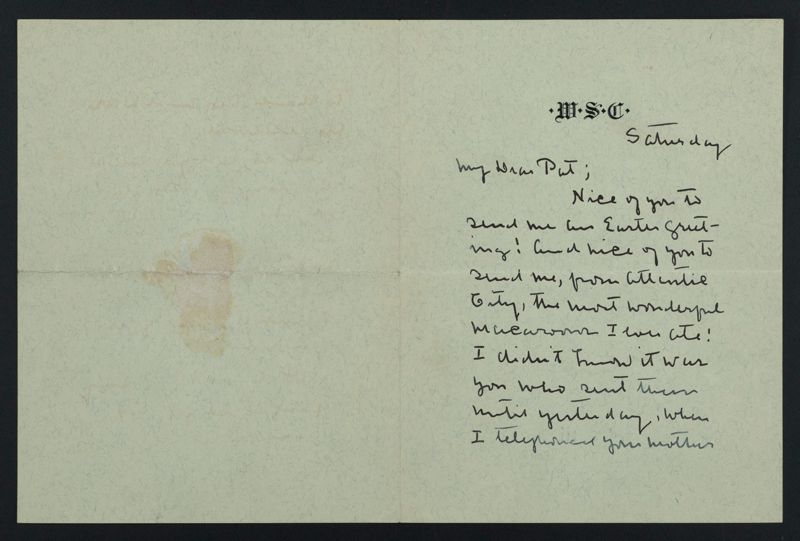 ·W·S·C·
Saturday
My Dear Pat;
Nice of you to
send me an Easter greet-
ing! And nice of you to
send me, from Atlantic
City, the most wonderful
macaroons I ever ate!
I didn't know it was
you who sent them
until yesterday, when
I telephoned your mother